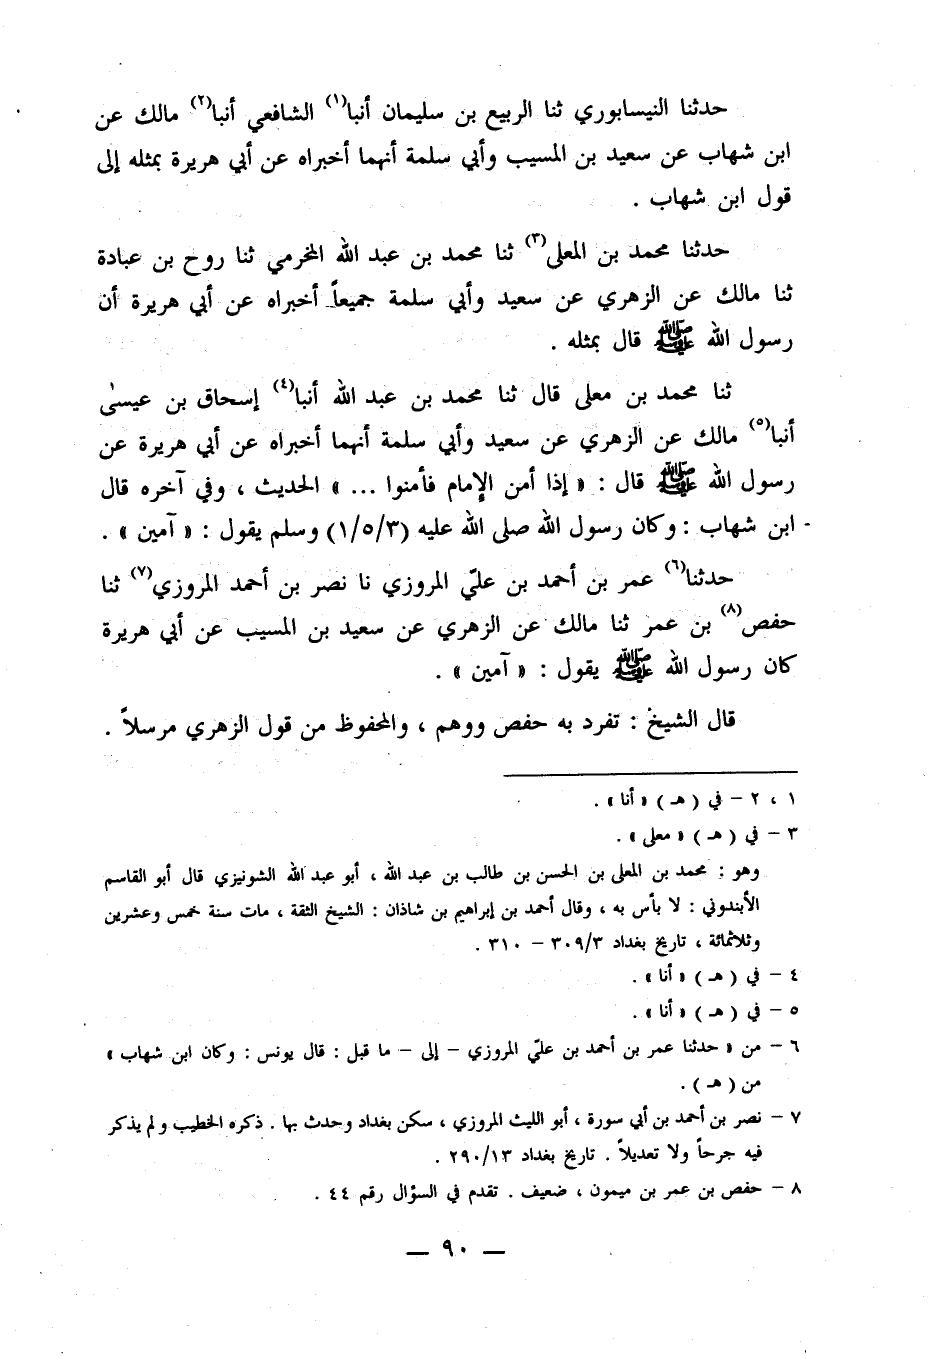 حدثنا النيسابوري ثنا الربيع بن سليمان أنبا(١) الشافعي أنبا(٢) مالك عن
ابن شهاب عن سعيد بن المسيب وأبي سلمة أنهما أخبراه عن أبي هريرة بمثله إلى
قول ابن شهاب .
حدثنا محمد بن المعلى(٣) ثنا محمد بن عبد الله المخرمي ثنا روح بن عبادة
ثنا مالك عن الزهري عن سعيد وأبي سلمة جميعاً أخبراه عن أبي هريرة أن
رسول الله ﷺ قال بمثله .
ثنا محمد بن معلى قال ثنا محمد بن عبد الله أنبا(٤) إسحاق بن عيسىٰ
أنبا(٥) مالك عن الزهري عن سعيد وأبي سلمة أنهما أخبراه عن أبي هريرة عن
رسول الله ﷺ قال : « إذا أمن الإمام فأمنوا ... » الحديث ، وفي آخره قال
ابن شهاب : وكان رسول الله صلى الله عليه (١/٥/٣) وسلم يقول : « آمين » .
حدثنا(٦) عمر بن أحمد بن عليّ المروزي نا نصر بن أحمد المروزي(٧) ثنا
حفص(٨) بن عمر ثنا مالك عن الزهري عن سعيد بن المسيب عن أبي هريرة
كان رسول الله ﷺ يقول : « آمين » .
قال الشيخ : تفرد به حفص ووهم ، والمحفوظ من قول الزهري مرسلاً .
١ ، ٢ – في ( هـ ) « أنا » .
٣ – في ( هـ ) « معلى » .
وهو : محمد بن المعلى بن الحسن بن طالب بن عبد الله ، أبو عبد الله الشونيزي قال أبو القاسم
الأبندوني : لا بأس به ، وقال أحمد بن إبراهيم بن شاذان : الشيخ الثقة ، مات سنة خمس وعشرين
وثلاثمائة ، تاريخ بغداد ٣٠٩/٣ – ٣١٠ .
٤ – في ( هـ ) « أنا » .
٥ – في ( هـ ) « أنا » .
٦ – من « حدثنا عمر بن أحمد بن عليّ المروزي – إلى – ما قبل : قال يونس : وكان ابن شهاب »
من ( هـ ) .
٧ – نصر بن أحمد بن أبي سورة ، أبو الليث المروزي ، سكن بغداد وحدث بها . ذكره الخطيب ولم يذكر
فيه جرحاً ولا تعديلاً . تاريخ بغداد ٢٩٠/١٣ .
٨ – حفص بن عمر بن ميمون ، ضعيف . تقدم في السؤال رقم ٤٤ .
— ٩٠ —